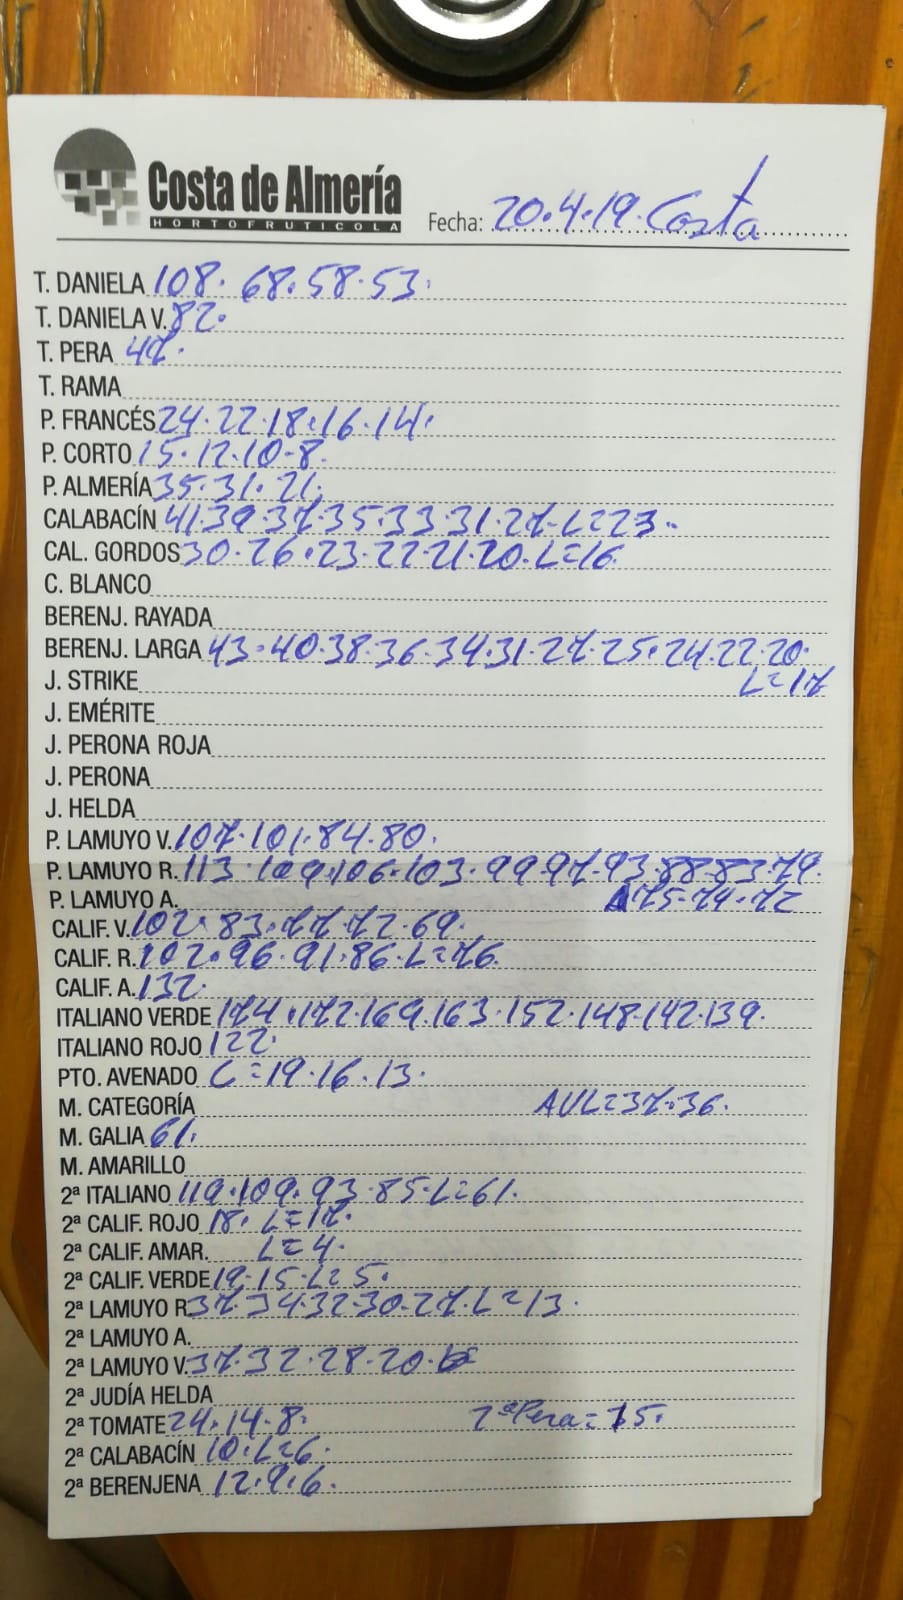 Costa de Almería
HORTOFRUTICOLA
Fecha: 20.4.19. Costa
T. DANIELA 108. 68.58.53.
T. DANIELA V. 82.
T. PERA 47.
T. RAMA
P. FRANCÉS 24.22.18.16.14.
P. CORTO 15.12.10-8.
P. ALMERÍA 35.31.21.
CALABACÍN 41.39.37.35.33.31.27-L=23.
CAL. GORDOS 30.26.23.22.21.20.L=16.
C. BLANCO
BERENJ. RAYADA
BERENJ. LARGA 43.40.38.36.34.31.27.25.24.22.20.
J. STRIKE L=17
J. EMÉRITE
J. PERONA ROJA
J. PERONA
J. HELDA
P. LAMUYO V. 107.101.84.80.
P. LAMUYO R. 113.109.106.103.99.97.93.88.83.79.
P. LAMUYO A. 75-74.72
CALIF. V. 102.83.77.72.69.
CALIF. R. 102.96.91.86.L=76.
CALIF. A. 132.
ITALIANO VERDE 174.172.169.163.152.148.142.139.
ITALIANO ROJO 122.
PTO. AVENADO C=19.16.13.
M. CATEGORÍA AVL=37.36.
M. GALIA 61.
M. AMARILLO
2ª ITALIANO 119.109.93.85.L=61.
2ª CALIF. ROJO 18. L=17.
2ª CALIF. AMAR. L=4.
2ª CALIF. VERDE 19.15.L=5.
2ª LAMUYO R 37.34.32.30.27.L=13.
2ª LAMUYO A.
2ª LAMUYO V. 37.32.28.20.
2ª JUDÍA HELDA
2ª TOMATE 24.14.8. 2ªPera=15.
2ª CALABACÍN 10.L=6.
2ª BERENJENA 12.9.6.